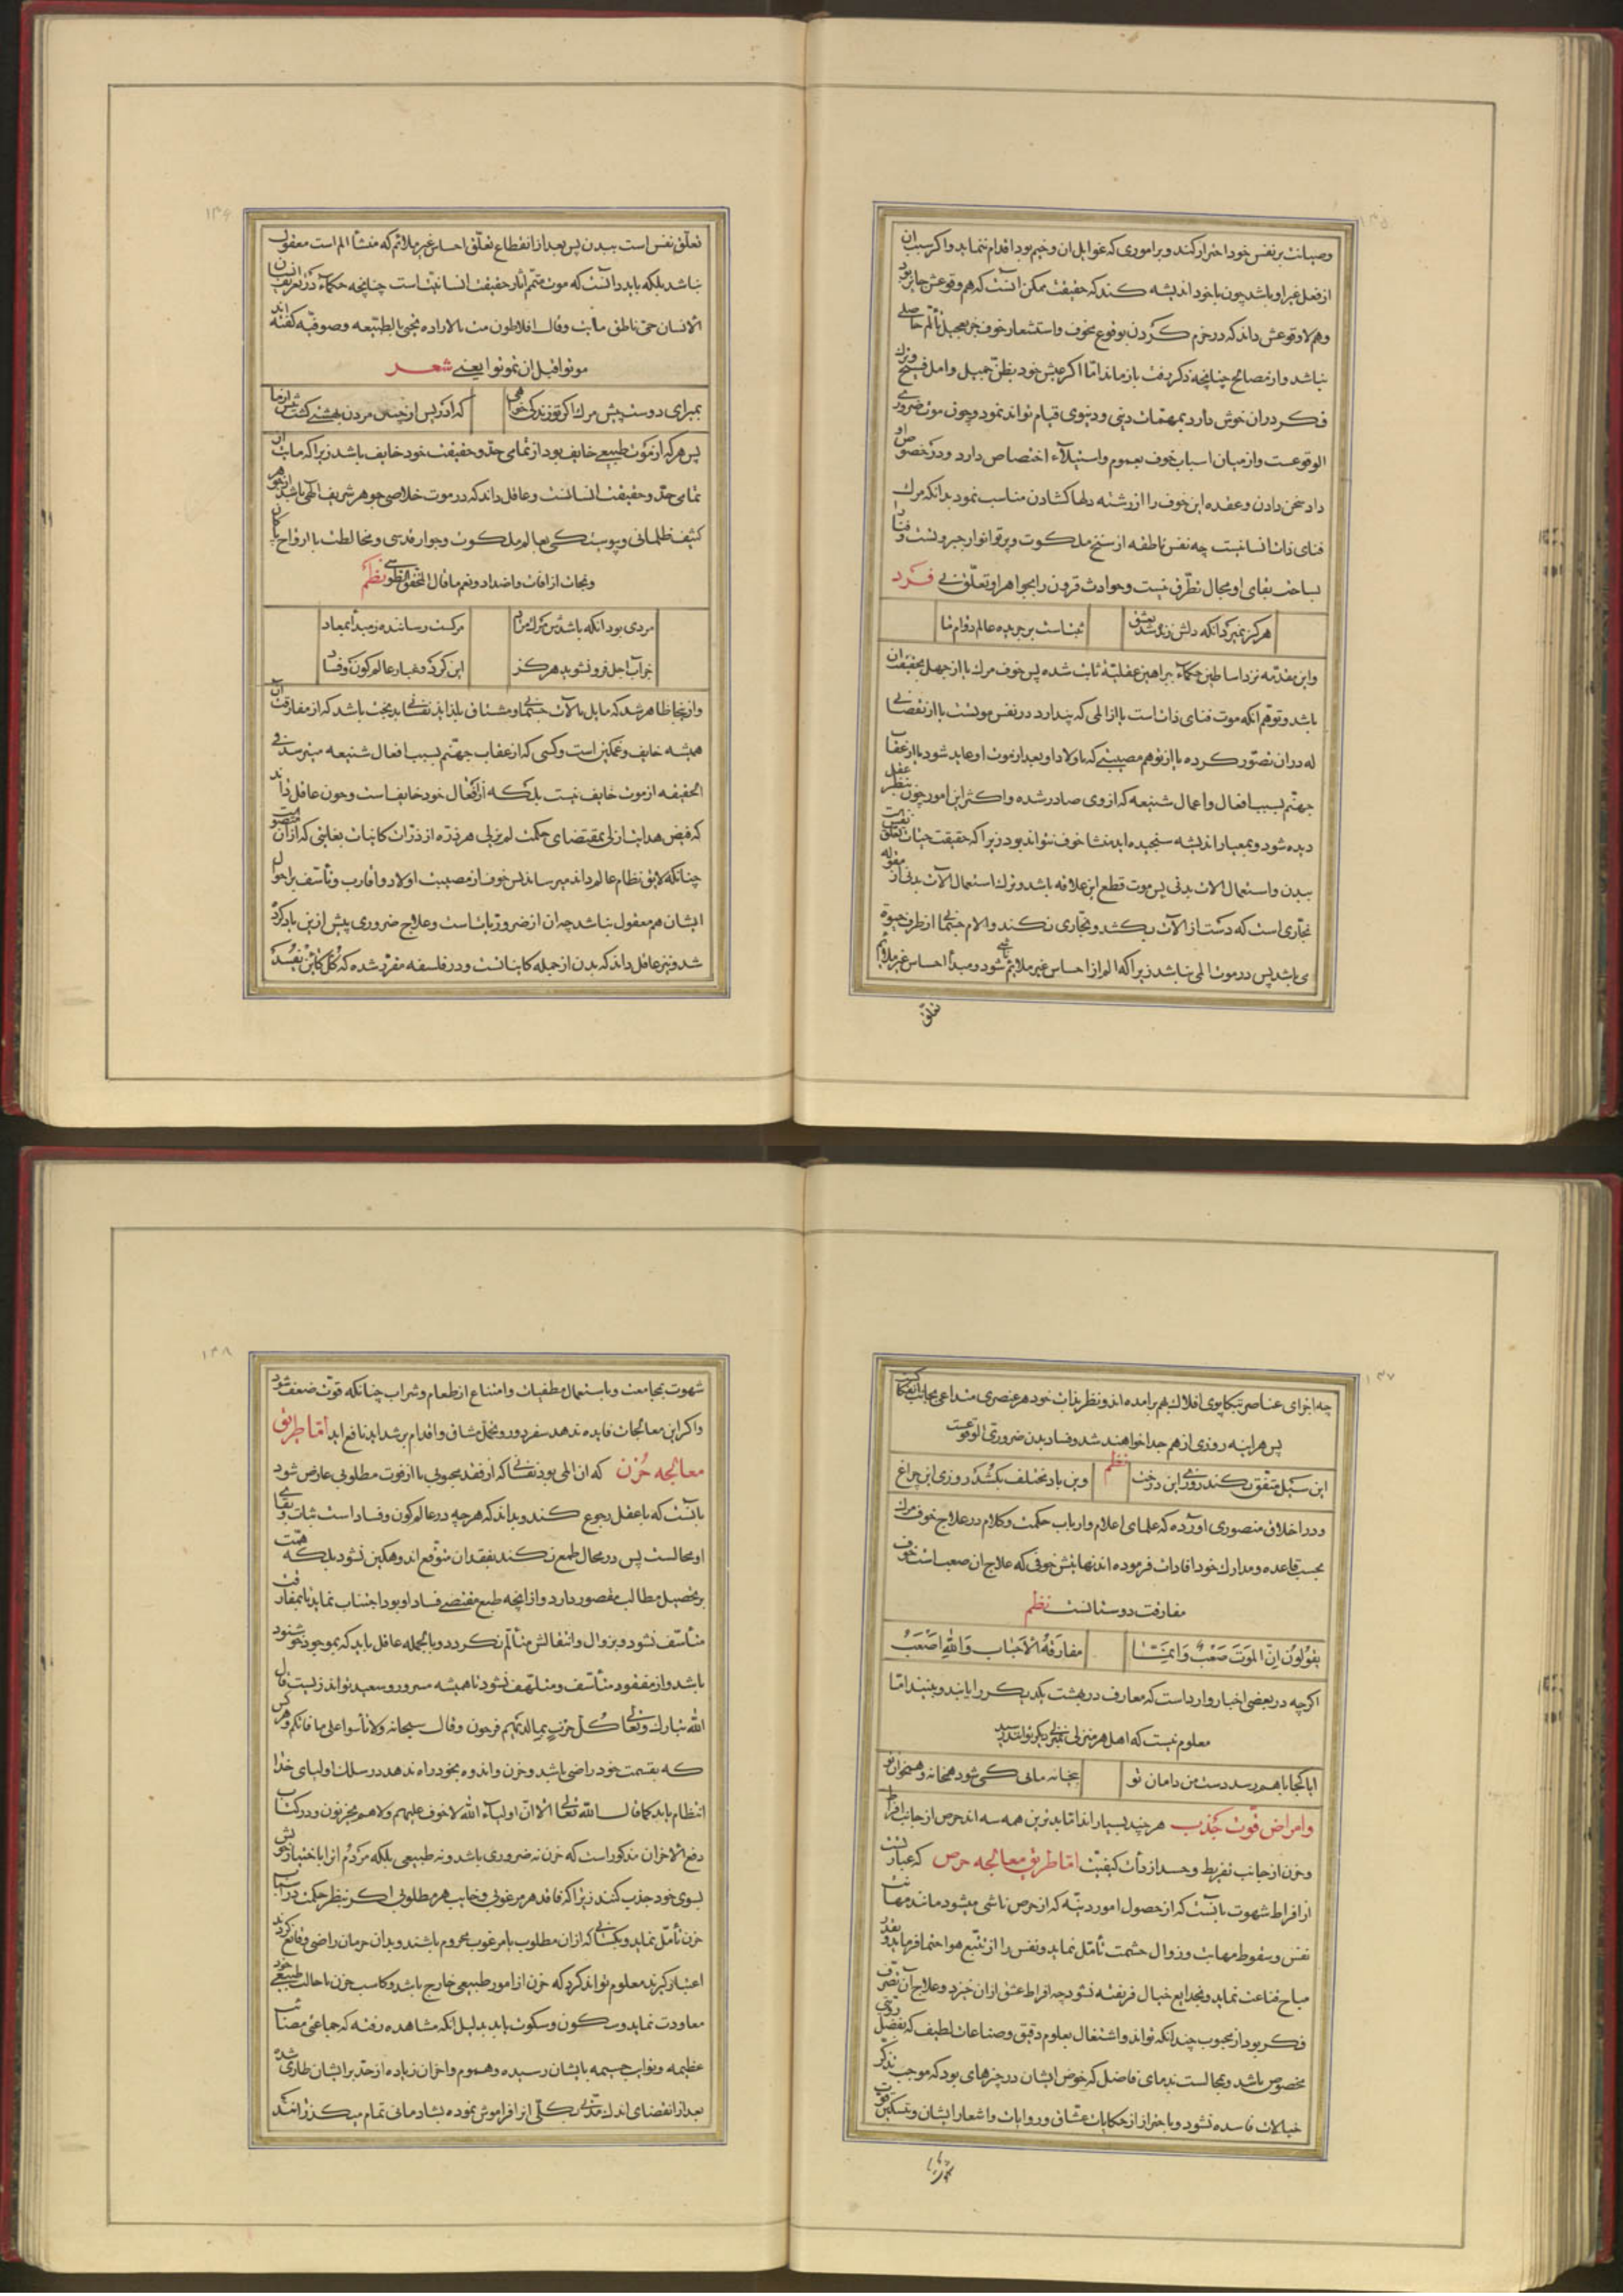 ۱۳۵
وصیانت بر نفس خود احتراز کند و بر اموری که عواید ان وخیم بود اقدام ننماید و اگر سبب ان
از فعل غیر او باشد چون با خود اندیشه کند که حقیقت ممکن آنست که هم وقوعش جایز بود
و هم لاوقوعش داند که در جزم کردن بوقوع مخوف و استشعار خوف جز تعجیل تألم حاصلی
نباشد و از مصالح چنانچه ذکر رفت باز ماند اما اگر عیش خود بظن جمیل و امل فسیح و ترک
فکر دران خوش دارد بمهمات دینی و دنیوی قیام تواند نمود و چون موت ضروری
الوقوعست و از میان اسباب خوف بعموم و استیلاء اختصاص دارد و در خصوص او
داد سخن دادن و عقده این خوف را از رشته دلها کشادن مناسب نمود بدانکه مرک
فنای ذات انسانیت چه نفس ناطقه از سنخ ملکوت و پرتو انوار جبروتست و فنا را
بساحت بقای او مجال تطرق نیست و حوادث قرون را بجواهر او تعلق نی فرد
هرکز نمیرد آنکه دلش زنده شد بعشق
ثبت است بر جریده عالم دوام ما
و این مقدمه نزد اساطین حکماء ببراهین عقلیة ثابت شده پس خوف مرک یا از جهل بحقیقت ان
باشد و توهم انکه موت فنای ذات است یا از المی که پندارد در نفس موتست یا از نقصانی
که دران تصور کرده یا از توهم مصیبتی که باولاد او بعد از موت او عاید شود یا از عقاب
جهنم بسبب افعال و اعمال شنیعه که از وی صادر شده و اکثر این امور چون بنظر عقل
دیده شود و بمعیار اندیشه سنجیده اید منشا خوف نتواند بود زیرا که حقیقت حیات تعلق نفس است
ببدن و استعمال الات بدنی پس موت قطع این علاقه باشد و ترک استعمال آلات بدنی از مقوله
نجاری است که دست از الات بکشد و نجاری نکند و الام جسمانی از طرف حیوة
می باشد پس در موت المی نباشد زیرا که الم از احساس غیر ملایم ناشی شود و مبدأ احساس غیر ملایم
تعلق
۱۳۶
تعلق نفس است ببدن پس بعد از انقطاع تعلق احساس غیر ملائم که منشأ الم است معقول
نباشد بلکه باید دانست که موت متمم آثار حقیقت انسانیت است چنانچه حکماء در تعریف انسان
الانسان حی ناطق مائت و قال افلاطون مت بالاراده تحیی بالطبیعه و صوفیه گفته اند
موتوا قبل ان تموتوا یعنی شعر
بمیر ای دوست پیش مرک اکر تو زندگی خواهی
که ادریس از چنین مردن بهشتی کشت پیش از ما
پس هر که از موت طبیعی خایف بود از تمامی حد و حقیقت خود خایف باشد زیرا که مایت ان
تمامی حد و حقیقت انسانست و عاقل داند که در موت خلاصی جوهر شریف الهی باشد از جوهر
کثیف ظلمانی و پیوستگی بعالم ملکوت و جوار قدسی و مخالطت با ارواح پاکان
و نجات از افات و اضداد و نعم ما قال المحقق الطوسی نظم
مردی بود آنکه باشدش مرک مراد
مرکست رساننده ز مبدأ بمعاد
جز آب اجل فرو نشوید هرکز
این کرد و غبار عالم کون و فساد
و از اینجا ظاهر شد که مایل بآلات جسمانی و مشتاق بلذایذ نفسانی بدبخت باشد که از مفارقت ان
همیشه خایف و غمگین است و کسی که از عقاب جهنم بسبب افعال شنیعه میترسد فی
الحقیقه از موت خایف نیست بلکه از افعال خود خایف است و چون عاقل داند
که فیض هدایت ازلی بمقتضای حکمت لم یزلی هر ذره از ذرات کاینات بغایتی که از آن متصور است
چنانکه لایق نظام عالم داند میرساند پس خوف از مصیبت اولاد و اقارب و تأسف بر احوال
ایشان هم معقول نباشد چه ان از ضروریات است و علاج ضروری پیش از ین یاد کرده
شد و نیز عاقل داند که بدن از جمله کاینات است و در فلسفه مقرر شده که کل کائن یفسد
۱۳۷
چه اجزای عناصر بتکاپوی افلاک بهم برامده اند و نظر بذات خود هر عنصری متداعی بجانب انفکاکست
پس هراینه روزی از هم جدا خواهند شد و فساد بدن ضروری الوقوعست
نظم
این سیل متفق بکند روزی این درخت
وین باد مختلف بکشد روزی این چراغ
و در اخلاق منصوری اورده که علمای اعلام و ارباب حکمت و کلام در علاج خوف مرک
بحسب قاعده و مدارک خود افادات فرموده اند نهایتش خوفی که علاج ان صعب است خوف
مفارقت دوستانست نظم
یقولون ان الموت صعب وانما
مفارقة الاحباب والله اصعب
اکرچه در بعضی اخبار وارد است که معارف در بهشت یکدیگر را یابند و ببینند اما
معلوم نیست که اهل هر منزلی بمنزلی دیگر توانند رسید
ایا کجا باهم رسد دست من و دامان تو
بیخانه مانی کی شود همخانه و همخوان تو
و امراض قوت جذب هر چند بسیار اند اما بدترین همه سه اند حرص از جانب افراط
و حزن از جانب تفریط و حسد از ردائت کیفیت اما طریق معالجه حرص که عبارتست
از افراط شهوت بآنست که از حصول امور دنیه که از حرص ناشی میشود مانند مهانت
نفس و سقوط مهابت و زوال حشمت تأمل نماید و نفس را از تتبع هوا احتما فرماید و بقدر
مباح قناعت نماید و بخدایع خیال فریفته نشود چه افراط عشق ازان خیزد و علاج ان تصرف
فکر بود از محبوب چندانکه تواند و اشتغال بعلوم دقیق و صناعات لطیف که بفضل رویتی
مخصوص باشد و مجالست ندمای فاضل که خوض ایشان در چیزهای بود که موجب تذکر
خیالات فاسده نشود و باحتراز از حکایات عشاق و روایات و اشعار ایشان و تسکین قوت
۱۳۸
شهوت بمجامعت و باستعمال مطفیات و امتناع از طعام و شراب چنانکه قوت ضعیف شود
و اکر این معالجات فایده ندهد سفر دور و تحمل مشاق و اقدام بر شداید نافع اید اما طریق
معالجه حزن که ان المی بود نفسانی که از فقد محبوبی یا از فوت مطلوبی عارض شود
بآنست که با عقل رجوع کند و بداند که هرچه در عالم کون و فساد است ثبات و بقای
او محالست پس در محال طمع نکند بفقدان متوقع اندوهگین نشود بلکه همت
بر تحصیل مطالب مقصور دارد و از انچه طبع مقتضی فساد او بود اجتناب نماید تا بمفارقت
متأسف نشود و بزوال و انتقالش متألم نکردد و بالجمله عاقل باید که بموجود خوشنود
باشد و از مفقود متأسف و متلهف نشود تا همیشه مسرور و سعید تواند زیست قال
الله تبارک و تعالی کل حزب بما لدیهم فرحون و قال سبحانه ولا تأسوا علی ما فاتکم و هر کس
که بقسمت خود راضی باشد و حزن و اندوه بخود راه ندهد در سلک اولیای خدا
انتظام یابد کما قال الله تعالی الا ان اولیاء الله لا خوف علیهم ولا هم یحزنون و در کتاب
دفع الاحزان مذکور است که حزن نه ضروری باشد و نه طبیعی بلکه مردم انرا باختیار خویش
بسوی خود جذب کنند زیرا که فاقد هر مرغوبی و خایب هر مطلوبی اکر بنظر حکمت در اسباب
حزن تأمل نماید و بکسانی که از ان مطلوب یا مرغوب محروم باشند و بدان حرمان راضی و قانع کردند
اعتبار گیرند معلوم تواند کرد که حزن از امور طبیعی خارج باشد و کاسب حزن با حالت طبیعی خود
معاودت نماید و سکون و سکوت یابد بدلیل انکه مشاهده رفته که جماعتی مصائب
عظیمه و نوایب جسیمه بایشان رسیده و هموم و احزان زیاده از حد بر ایشان طاری شده
بعد از انقضای اندک مدتی بکلی انرا فراموش نموده بشادمانی تمام میگذرانند